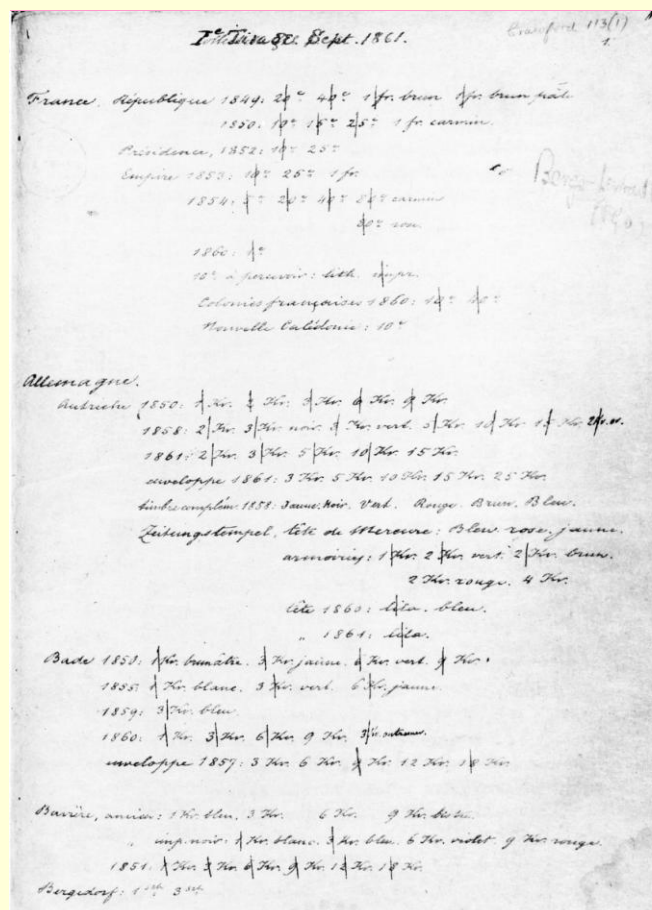 1e Tirage. Sept. 1861.
Crawford 113(1)
1
France. République 1849: 20c 40c 1 fr. brun 1 fr. brun pâle
1850: 10c 15c 25c 1 fr. carmin.
Présidence, 1852: 10c 25c
Empire 1853: 10c 25c 1 fr.
1854: 5c 20c 40c 80c carmin
80c rose
1860: 1c
10c à percevoir: lith. impr.
Colonies françaises 1860: 10c 40c
Nouvelle Calédonie: 10c
Allemagne.
Autriche 1850: 1 Kr. 2 Kr. 3 Kr. 6 Kr. 9 Kr.
1858: 2 Kr. 3 Kr. noir. 3 Kr. vert. 5 Kr. 10 Kr. 15 Kr.
1861: 2 Kr. 3 Kr. 5 Kr. 10 Kr. 15 Kr.
enveloppe 1861: 3 Kr. 5 Kr. 10 Kr. 15 Kr. 25 Kr.
timbre complém. 1858: Jaune. Noir. Vert. Rouge. Brun. Bleu.
Zeitungstempel, tête de Mercure: Bleu. rose. jaune.
armoiries: 1 Kr. 2 Kr. vert. 2 Kr. brun.
2 Kr. rouge. 4 Kr.
tête 1860: lila. bleu.
" 1861: lila.
Bade 1850: 1 Kr. brunâtre. 3 Kr. jaune. 6 Kr. vert. 9 Kr.
1855: 1 Kr. blanc. 3 Kr. vert. 6 Kr. jaune.
1859: 3 Kr. bleu.
1860: 1 Kr. 3 Kr. 6 Kr. 9 Kr.
enveloppe 1857: 3 Kr. 6 Kr. 9 Kr. 12 Kr. 18 Kr.
Bavière, ancien: 1 Kr. bleu. 3 Kr. 6 Kr. 9 Kr.
" imp. noir: 1 Kr. blanc. 3 Kr. bleu. 6 Kr. violet. 9 Kr. rouge.
1851: 1 Kr. 3 Kr. 6 Kr. 9 Kr. 12 Kr. 18 Kr.
Bergedorf: 1 sch. 3 sch.